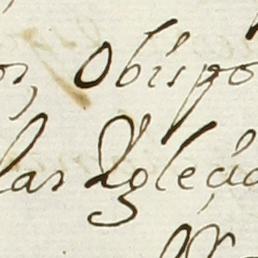 os, Obispo
las Igleçia